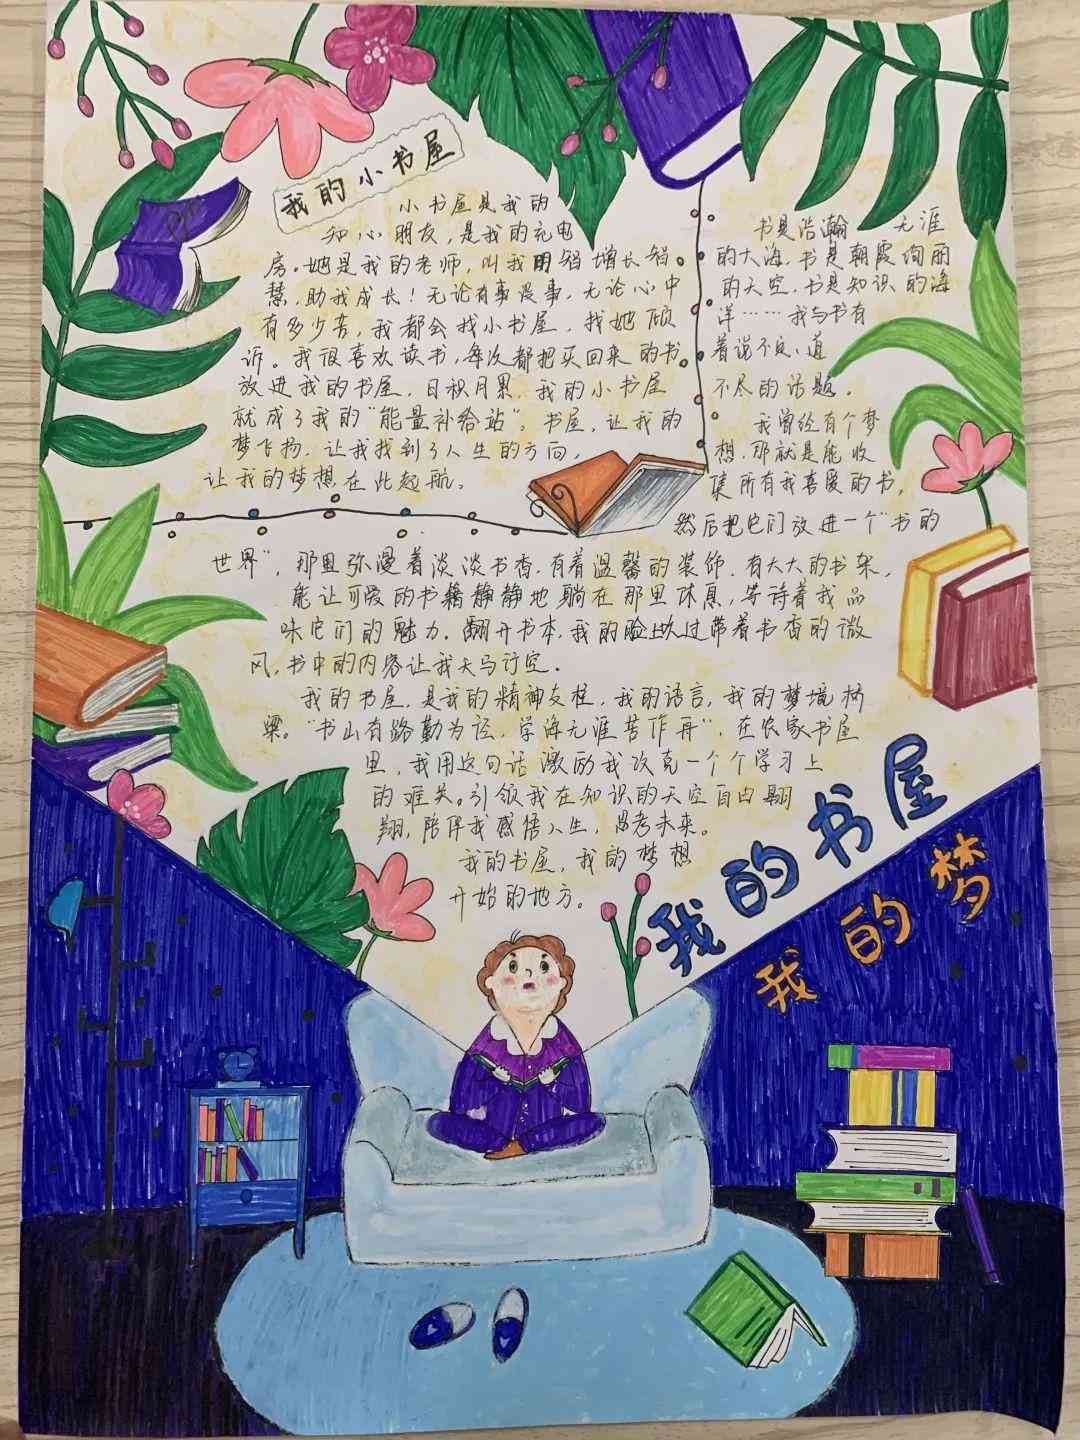 我的小书屋
小书屋是我的
知心朋友，是我的充电
房。她是我的老师，叫我用智增长智
慧，助我成长！无论有事没事，无论心中
有多少苦，我都会找小书屋，找她倾
诉。我很喜欢读书，每次都把买回来的书
放进我的书屋，日积月累，我的小书屋
就成了我的“能量补给站”。书屋，让我的
梦飞扬，让我找到了人生的方向，
让我的梦想在此起航。
书是浩瀚无涯
的大海，书是朝霞绚丽
的天空，书是知识的海
洋……我与书有
着说不完、道
不尽的话题。
我曾经有个梦
想，那就是能收
集所有我喜爱的书，
然后把它们放进一个“书的
世界”，那里弥漫着淡淡书香，有着温馨的装饰，有大大的书架，
能让可爱的书籍静静地躺在那里休息，等待着我品
味它们的魅力。翻开书本，我的脸上吹过带着书香的微
风，书中的内容让我天马行空。
我的书屋，是我的精神支柱，我的语言，我的梦境桥
梁。“书山有路勤为径，学海无涯苦作舟”，在农家书屋
里，我用这句话激励我攻克一个个学习上
的难关。引领我在知识的天空自由翱
翔，陪伴我感悟人生，思考未来。
我的书屋，我的梦想
开始的地方。
我的书屋
我的梦